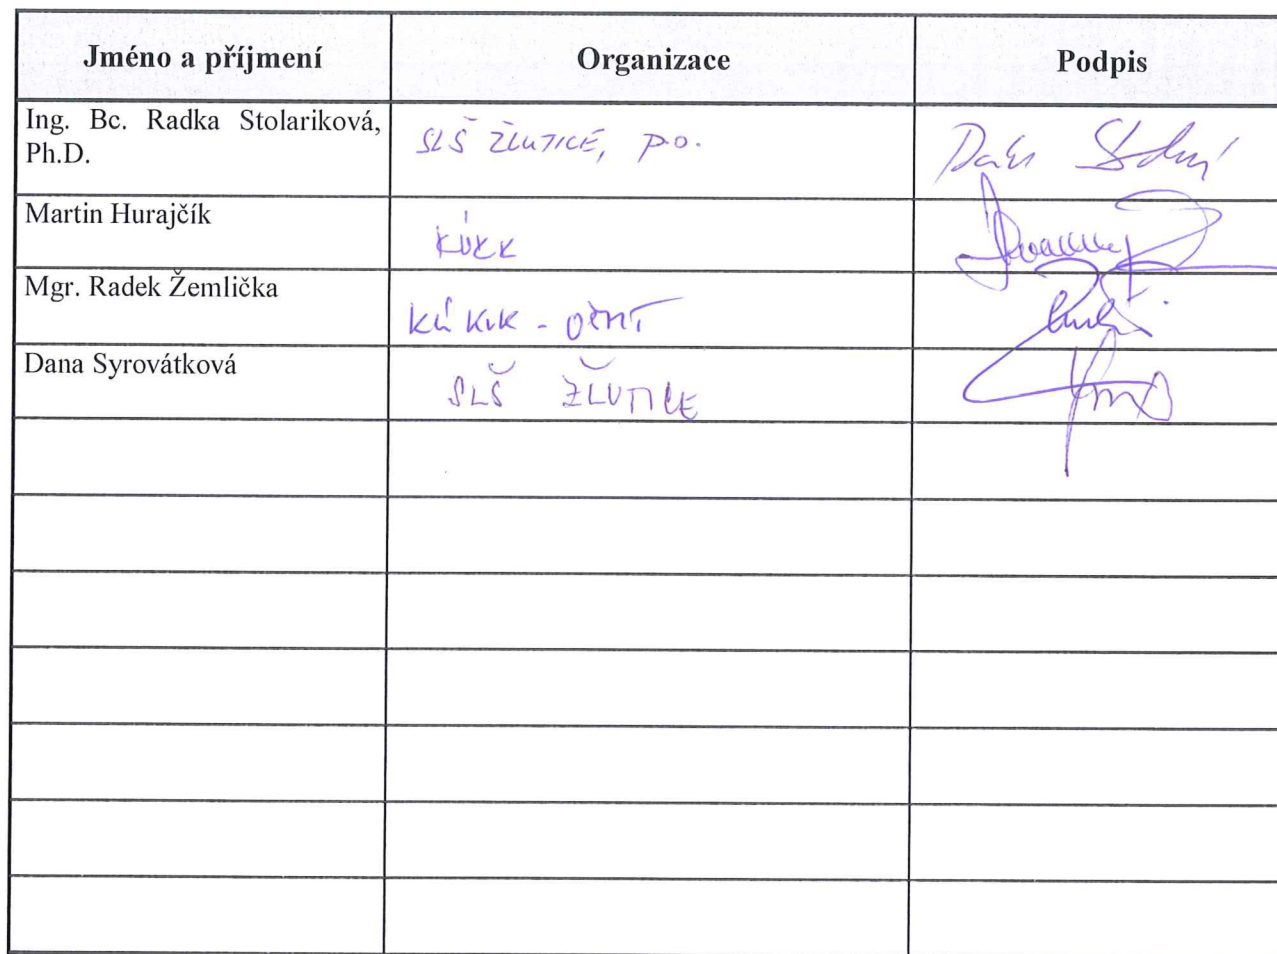 Jméno a příjmení Organizace Podpis
Ing. Bc. Radka Stolariková, SLŠ ŽLUTICE, p.o.
Ph.D.
Martin Hurajčík KÚKK
Mgr. Radek Žemlička KÚ KVK -
Dana Syrovátková SLŠ ŽLUTICE